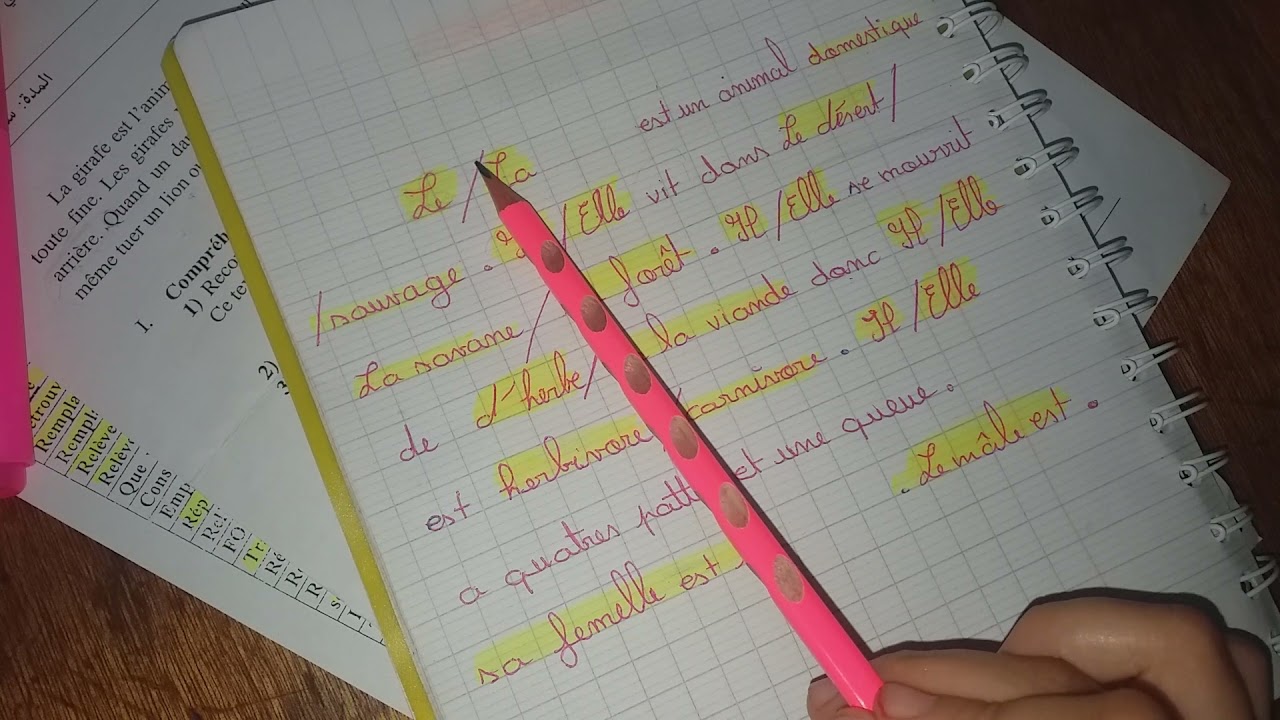 Le / La est un animal domestique
/ sauvage . / Elle vit dans Le désert /
La savane / forêt . Il / Elle se mourrit
de d'herbe / la viande donc Il / Elle
est herbivore / carnivore . Il / Elle
a quatres patt et une queue .
. Le mâle est .
sa femelle est
المادة:
La girafe est l'anim
toute fine. Les girafes
arrière. Quand un da
même tuer un lion o
I. Compréh
1) Reco
Ce te
2)
Rempla
Rempl
Relève
Relèv
Que
Cons
Emp
Rép
Rel
FO
Tr
Ré
R
R